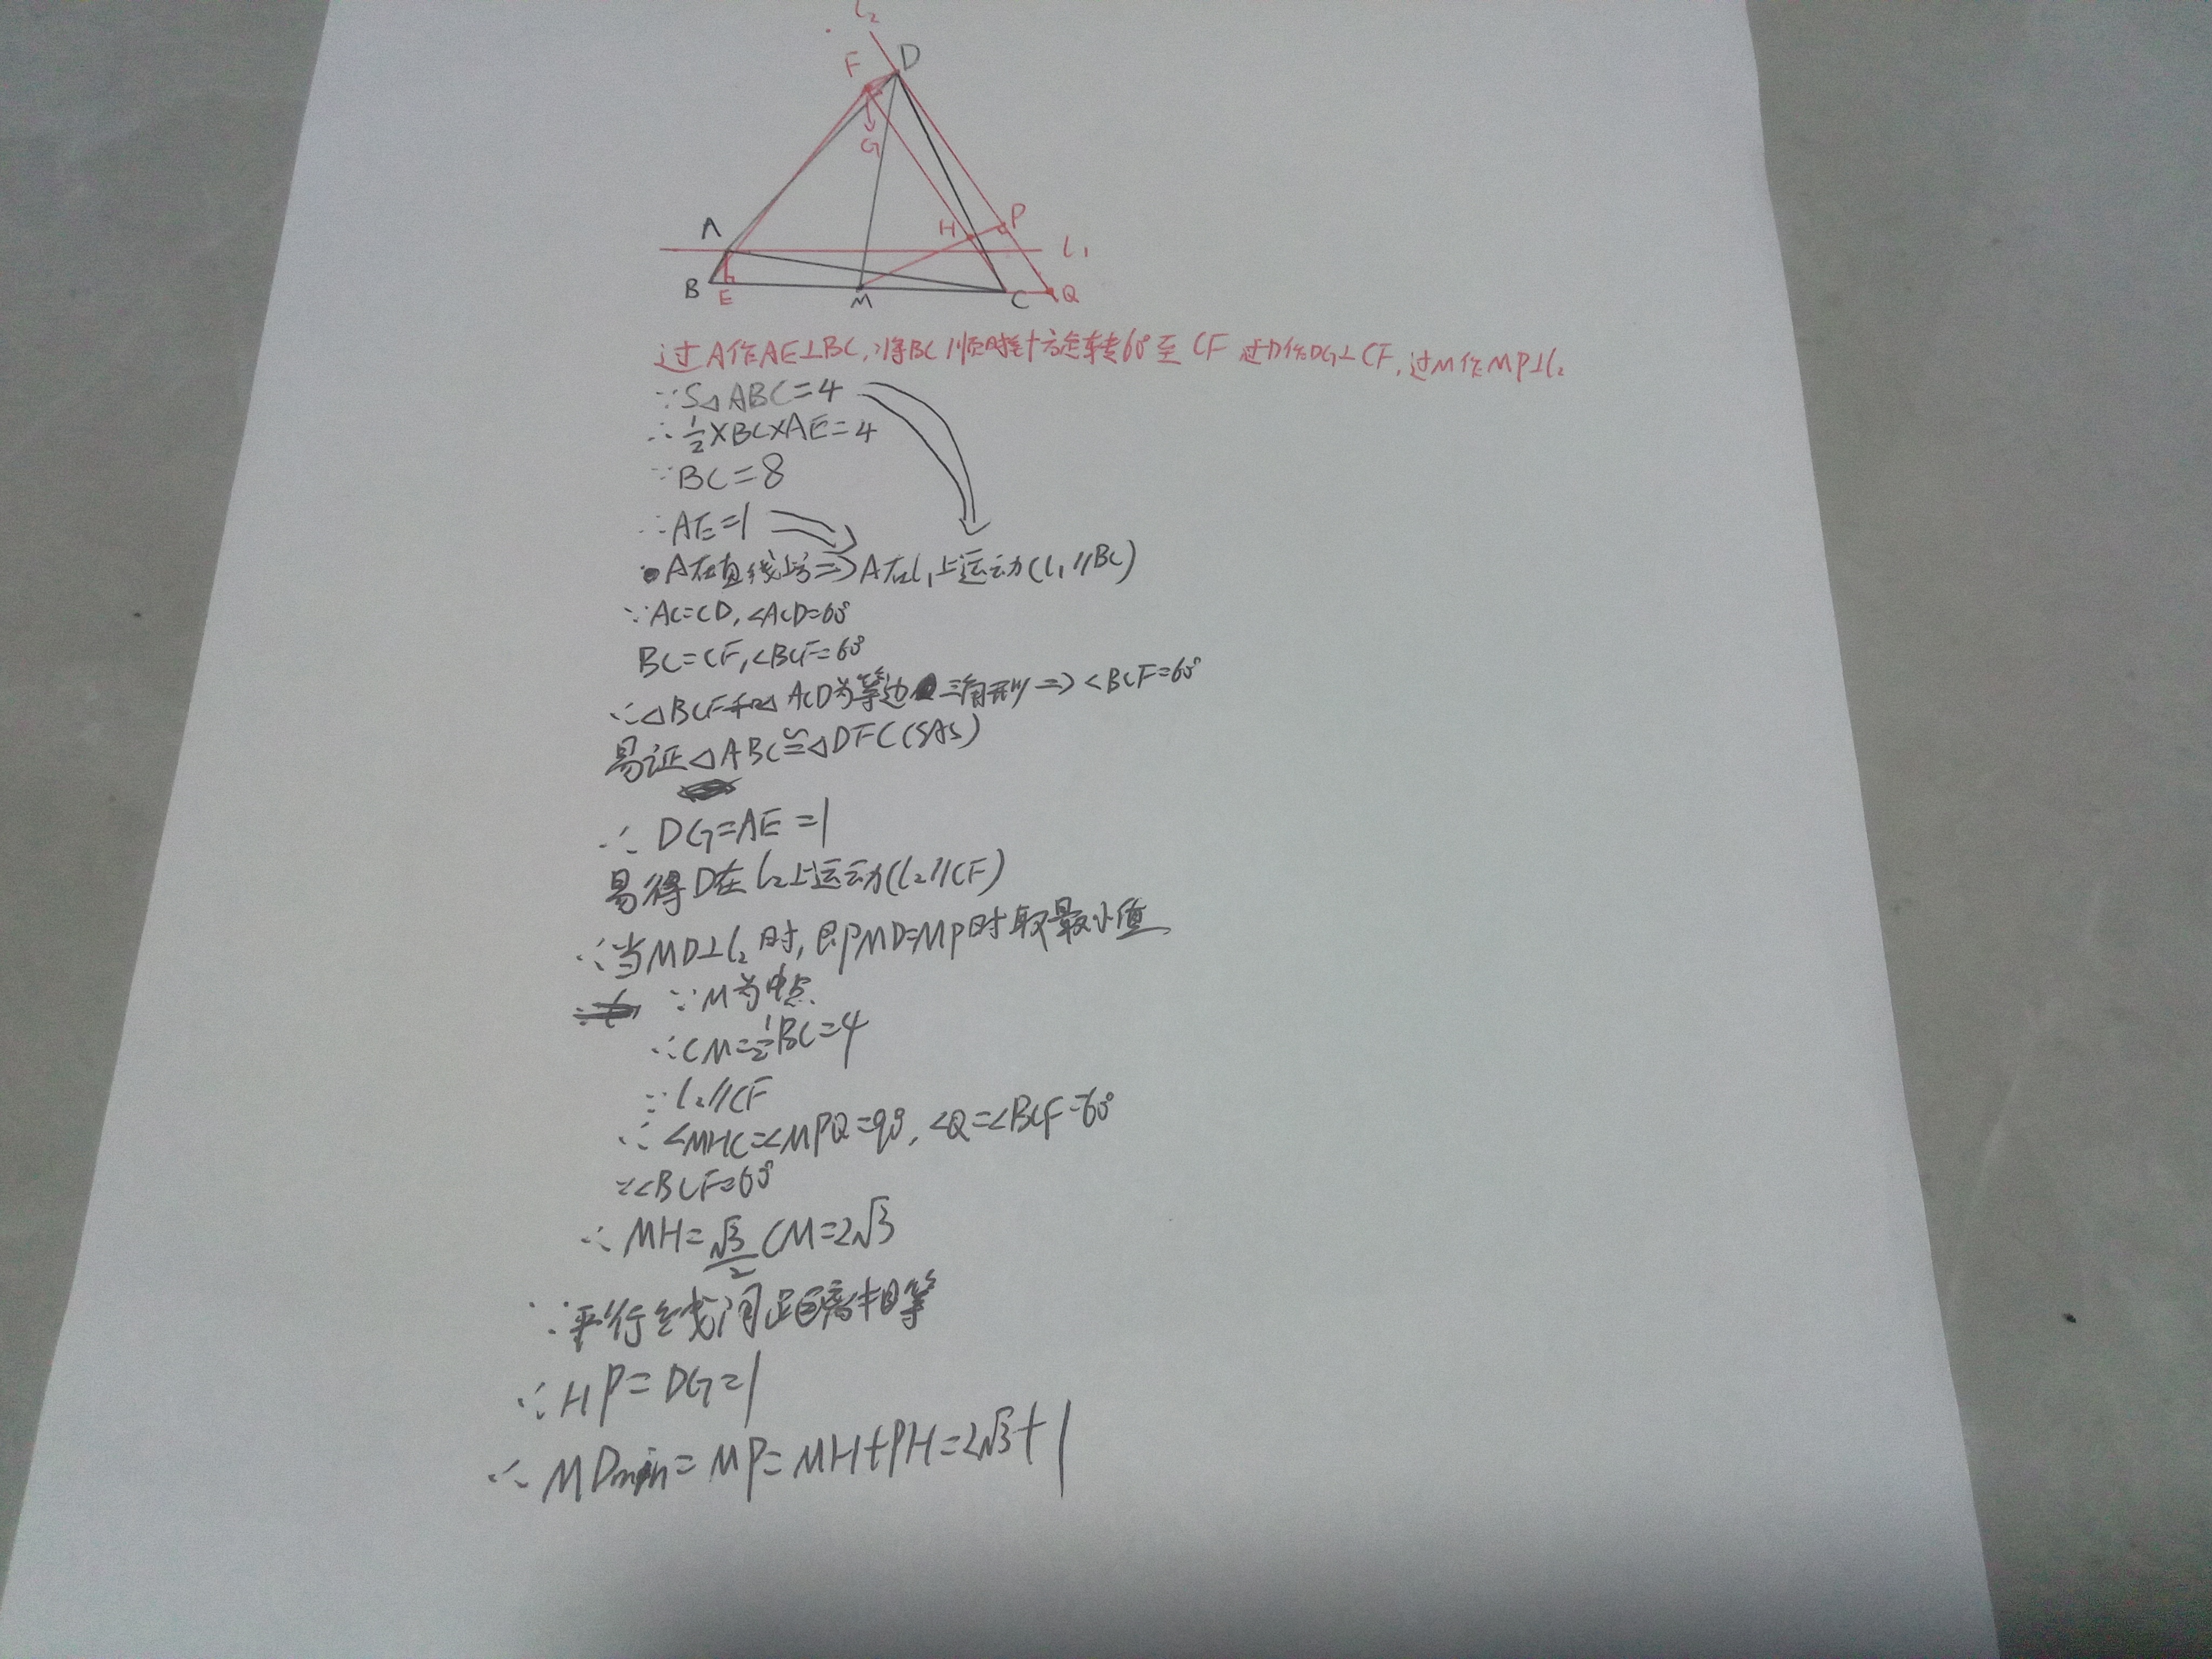 l₂
F D
G
A H P
l₁
B E M C Q
过A作AE⊥BC,将BC顺时针方旋转60°至CF 过D作DG⊥CF,过M作MP⊥l₂
∵S△ABC=4
∴½×BC×AE=4
∵BC=8
∴AE=1
A在直线上方⇒A在l₁上运动(l₁//BC)
∵AC=CD,∠ACD=60°
BC=CF,∠BCF=60°
∴△BCF和△ACD为等边三角形⇒∠BCF=60°
易证△ABC≌△DFC(SAS)
∴DG=AE=1
易得D在l₂上运动(l₂//CF)
∴当MD⊥l₂时,即MD=MP时取最小值
∵M为中点
∴CM=½BC=4
∵l₂//CF
∴∠MHC=∠MPQ=90°,∠Q=∠BCF=60°
∵∠BCF=60°
∴MH=√3/2CM=2√3
∵平行线间距离相等
∴HP=DG=1
∴MDmin=MP=MH+PH=2√3+1